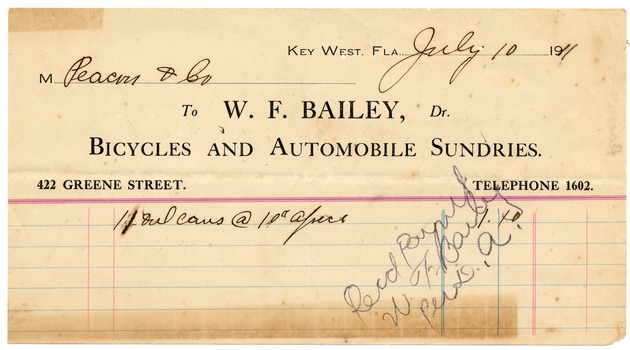 Key West, Fla. July 10 1911
M Peacon & Co
To W. F. BAILEY, Dr.
Bicycles and Automobile Sundries.
422 GREENE STREET. TELEPHONE 1602.
oil cans @ 10¢ apiece 1.40
Recd payment
W. F. Bailey
per D. A.